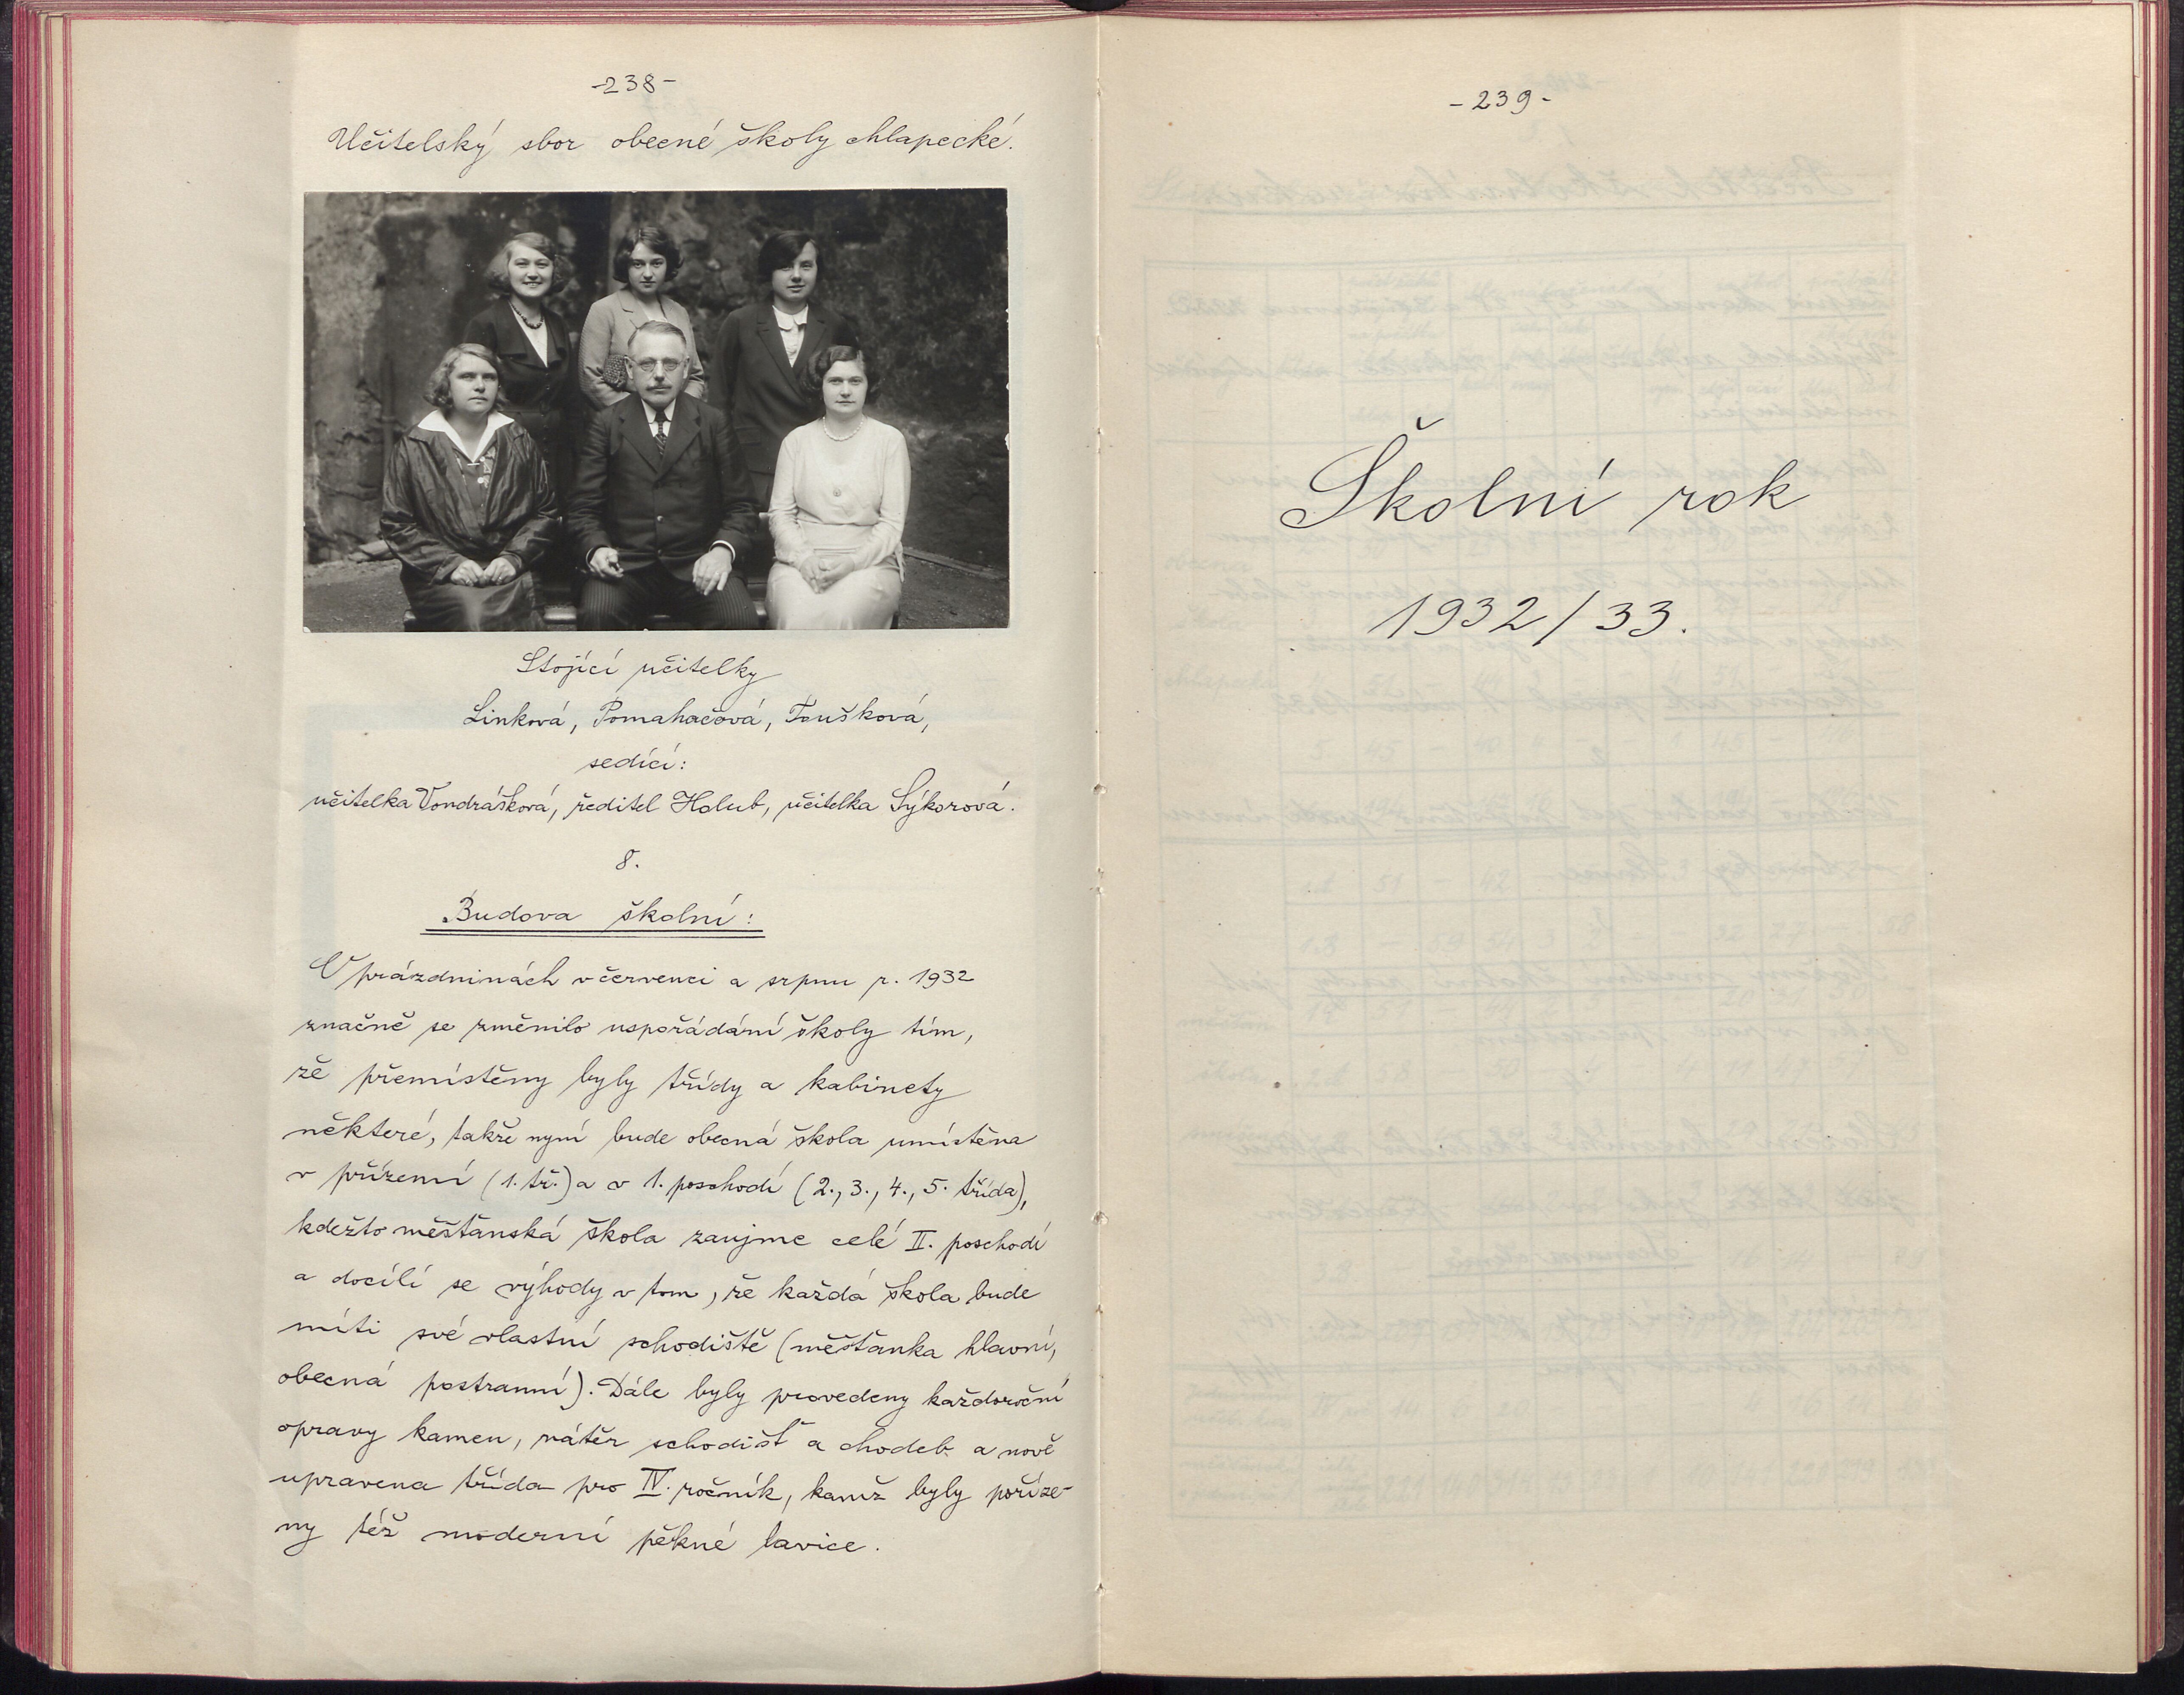 -238-
Učitelský sbor obecné školy chlapecké.
Stojící učitelky
Linková, Pomahačová, Toušková,
sedící:
učitelka Vondrášková, ředitel Holub, učitelka Sýkorová.
8.
Budova školní:
O prázdninách v červenci a srpnu r. 1932
značně se změnilo uspořádání školy tím,
že přemístěny byly třídy a kabinety
některé, takže nyní bude obecná škola umístěna
v přízemí (1. tř.) a v 1. poschodí (2., 3., 4., 5. třída),
kdežto měšťanská škola zaujme celé II. poschodí
a docílí se výhody v tom, že každá škola bude
míti své vlastní schodiště (měšťanka hlavní,
obecná postranní). Dále byly provedeny každoroční
opravy kamen, nátěr schodišť a chodeb a nově
upravena třída pro IV. ročník, kamž byly poříze-
ny též moderní pěkné lavice.
-239-
Školní rok
1932/33.